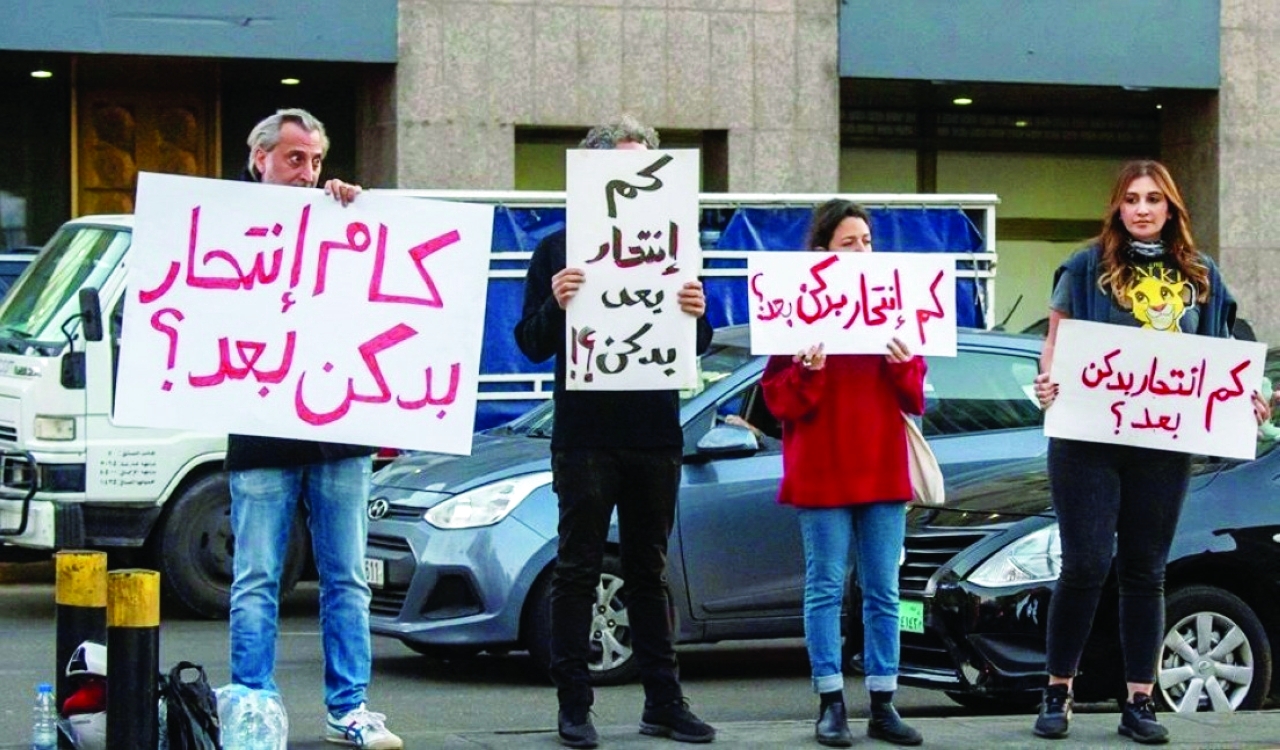 كام إنتحار
بدكن بعد؟
كم
إنتحار
بعد
بدكن؟!
كم إنتحار بدكن بعد؟
كم انتحار بدكن
بعد؟